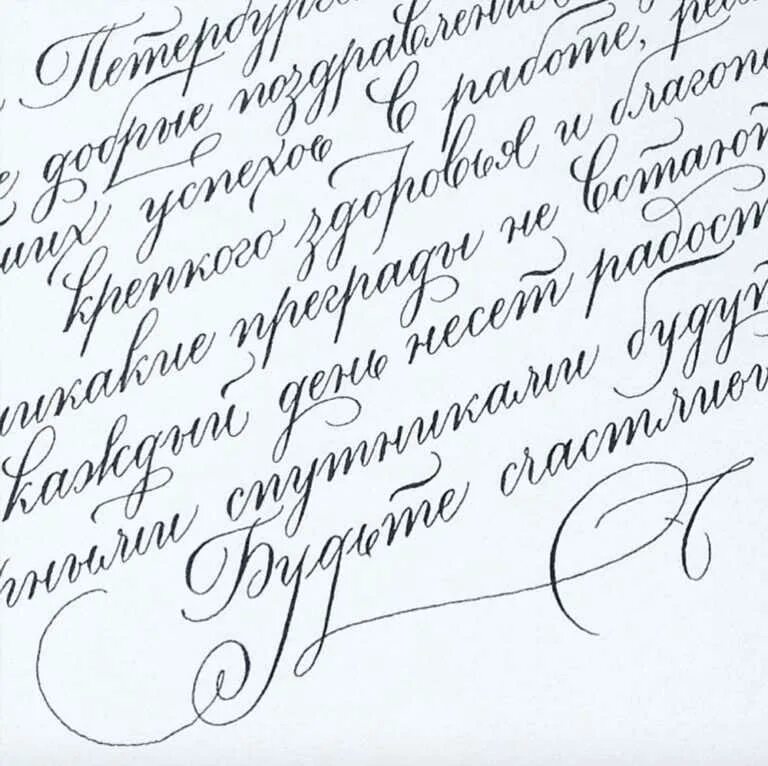 Петербурга
е добрые поздравления
ших успехов в работе,
крепкого здоровья и благопо
никакие преграды не встают
каждый день несет радост
спутниками будут
Будьте счастливы